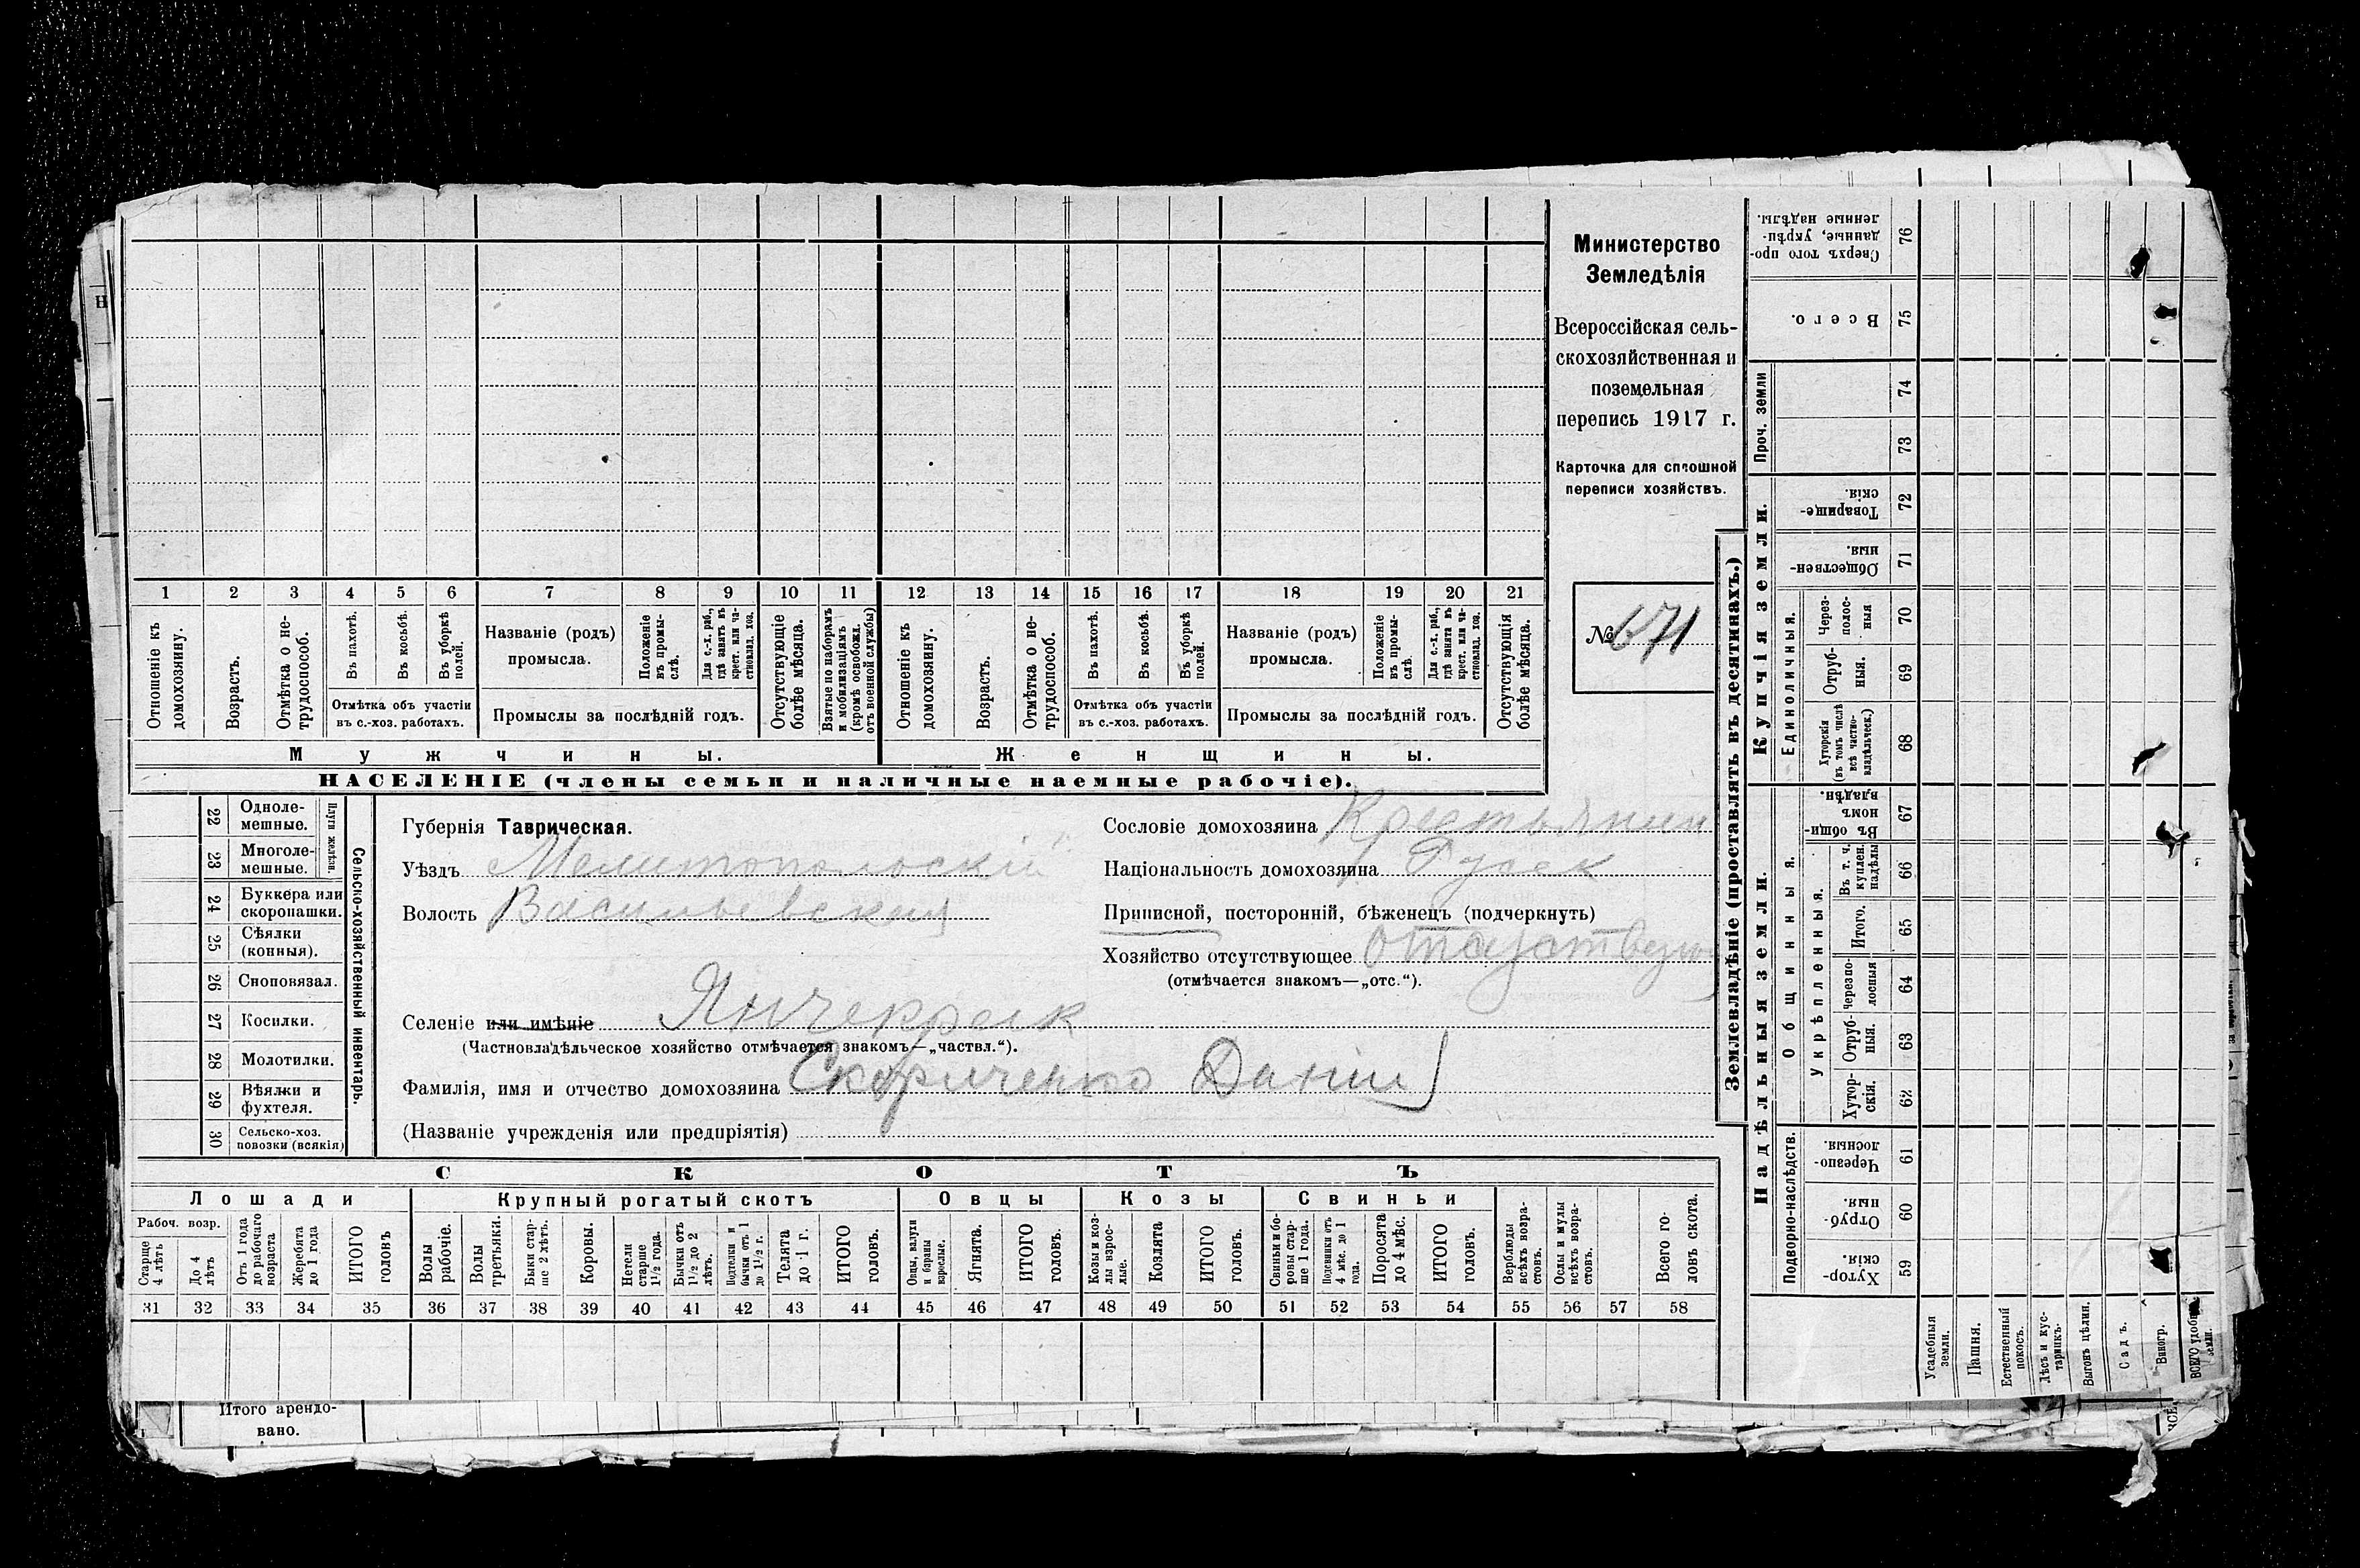 Министерство
Земледѣлія
Всероссійская сель-
скохозяйственная и
поземельная
перепись 1917 г.
Карточка для сплошной
переписи хозяйствъ.
№ 671
1 2 3 4 5 6 7 8 9 10 11 12 13 14 15 16 17 18 19 20 21
Отношеніе къ домохозяину.
Возрастъ.
Отмѣтка о не-трудоспособ.
Въ пахотѣ.
Въ косьбѣ.
Въ уборкѣ полей.
Отмѣтка объ участіи
въ с.-хоз. работахъ.
Названіе (родъ)
промысла.
Положеніе въ промы-слѣ.
Для с.-х. раб., гдѣ занятъ въ крест. или ча-стновлад. хоз.
Промыслы за послѣдній годъ.
Отсутствующіе болѣе мѣсяца.
Взятые по наборамъ и мобилизаціямъ (кромѣ освобожд. отъ военной службы)
Отношеніе къ домохозяину.
Возрастъ.
Отмѣтка о не-трудоспособ.
Въ пахотѣ.
Въ косьбѣ.
Въ уборкѣ полей.
Отмѣтка объ участіи
въ с.-хоз. работахъ.
Названіе (родъ)
промысла.
Положеніе въ промы-слѣ.
Для с.-х. раб., гдѣ занята въ крест. или ча-стновлад. хоз.
Промыслы за послѣдній годъ.
Отсутствующія болѣе мѣсяца.
Мужчины.
Женщины.
НАСЕЛЕНІЕ (члены семьи и наличные наемные рабочіе).
Сельско-хозяйственный инвентарь.
Плуги желѣзн.
22 Одноле-мешные.
23 Многоле-мешные.
24 Буккера или скоропашки.
25 Сѣялки (конныя).
26 Сноповязал.
27 Косилки.
28 Молотилки.
29 Вѣялки и фухтеля.
30 Сельско-хоз. повозки (всякія)
Губернія Таврическая.
Уѣздъ Мелитопольскій
Волость Васильевская
Сословіе домохозяина Крестьянин
Національность домохозяина Русск
Приписной, посторонній, бѣженецъ (подчеркнуть)
Хозяйство отсутствующее
(отмѣчается знакомъ—„отс.“).
Селеніе или имѣніе Янчекрак
(Частновладѣльческое хозяйство отмѣчается знакомъ—„частвл.“).
Фамилія, имя и отчество домохозяина Скориченко Данил
(Названіе учрежденія или предпріятія)
СКОТЪ
Лошади
Крупный рогатый скотъ
Овцы
Козы
Свиньи
Рабоч. возр.
Старше 4 лѣтъ
До 4 лѣтъ
Отъ 1 года до рабочаго возраста
Жеребята до 1 года
ИТОГО головъ
Волы рабочіе.
Волы третьяки.
Быки стар-ше 2 лѣтъ.
Коровы.
Нетели старше 1½ года.
Бычки отъ 1½ до 2 лѣтъ.
Подтелки и бычки отъ 1 до 1½ г.
Телята до 1 г.
ИТОГО головъ.
Овцы, валухи и бараны взрослые.
Ягнята.
ИТОГО головъ.
Козы и коз-лы взрос-лые.
Козлята
ИТОГО головъ.
Свиньи и бо-ровы стар-ше 1 года.
Подсвинки отъ 4 мѣс. до 1 года.
Поросята до 4 мѣс.
ИТОГО головъ.
Верблюды всѣхъ возра-стовъ.
Ослы и мулы всѣхъ возра-стовъ.
Всего го-ловъ скота.
31 32 33 34 35 36 37 38 39 40 41 42 43 44 45 46 47 48 49 50 51 52 53 54 55 56 57 58
Землевладѣніе (проставлять въ десятинахъ.)
Купчія земли.
Надѣльныя земли.
76 Сверхъ того про-данные, укрѣп-ленные надѣлы.
75 Всего.
Проч. земли
74
73
72 Товарище-скія.
71 Обществен-ныя.
Единоличныя.
70 Через-полос-ныя
69 Отруб-ныя.
68 Хуторскія (въ томъ числѣ всѣ частно-владѣльческ.)
Общинныя.
67 Въ общи-номъ владѣн.
Укрѣпленныя.
66 Въ т. ч. куплен. надѣлы
65 Итого.
64 Черезпо-лосныя
63 Отруб-ныя.
62 Хутор-скія.
Подворно-наслѣдств.
61 Черезпо-лосныя.
60 Отруб-ныя.
59 Хутор-скія.
Усадебныя земли.
Пашня.
Естественный покосъ.
Лѣсъ и кус-тарникъ.
Выгонъ цѣлин.
Садъ.
Виногр.
ВСЕГО удобн. земли.
Итого арендо-
вано.